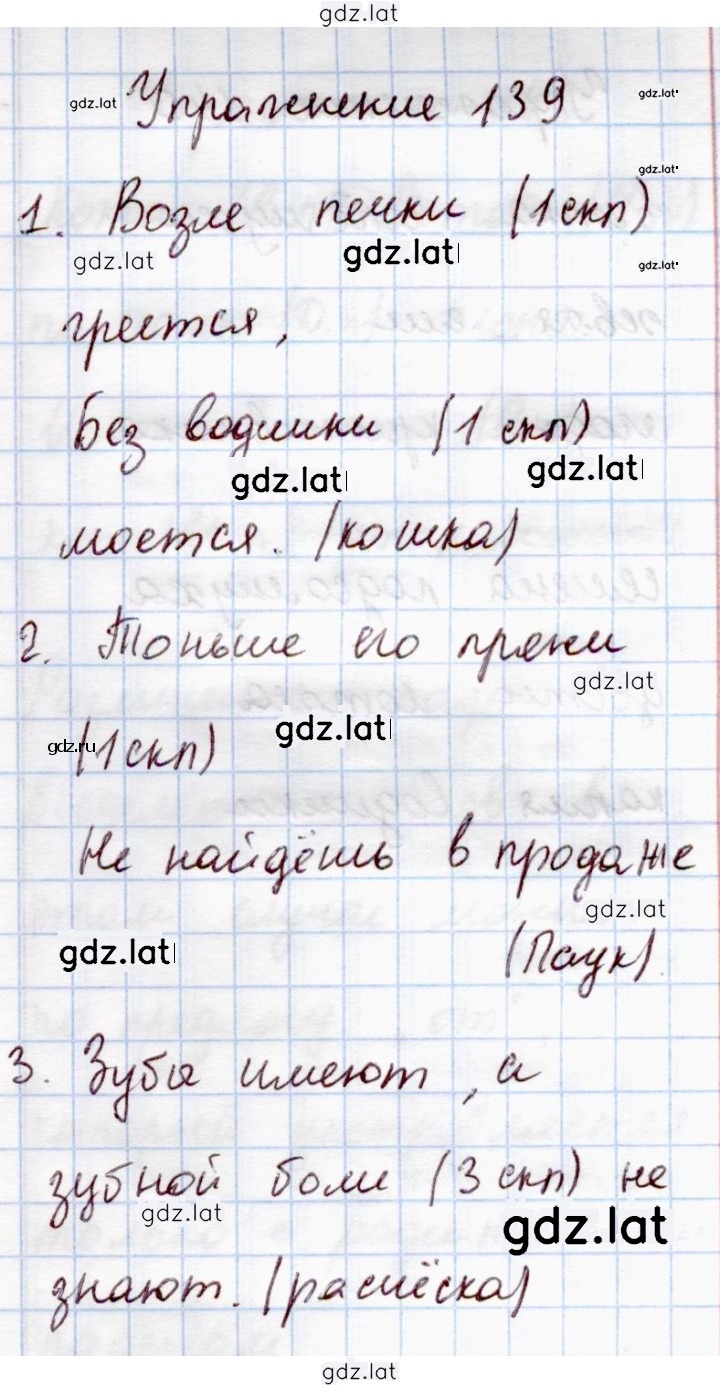 gdz.lat
gdz.lat Упражнение 139 gdz.lat
gdz.lat
1. Возле печки (1 скл)
gdz.lat gdz.lat gdz.lat
греется,
Без водички (1 скл)
gdz.lat gdz.lat
моется. (кошка)
2. Тоньше его пряжи
gdz.lat
gdz.ru (1 скл) gdz.lat
Не найдёшь в продаже
gdz.lat
gdz.lat (Паук).
3. Зубы имеют, а
зубной боли (3 скл) не
gdz.lat gdz.lat
знают. (расчёска)
gdz.lat